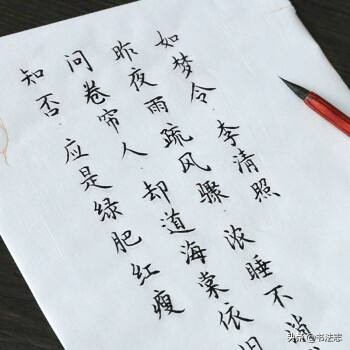 如梦令·李清照
昨夜雨疏风骤·浓睡不消
问卷帘人·却道海棠依
知否·应是绿肥红瘦
头条 @书法志